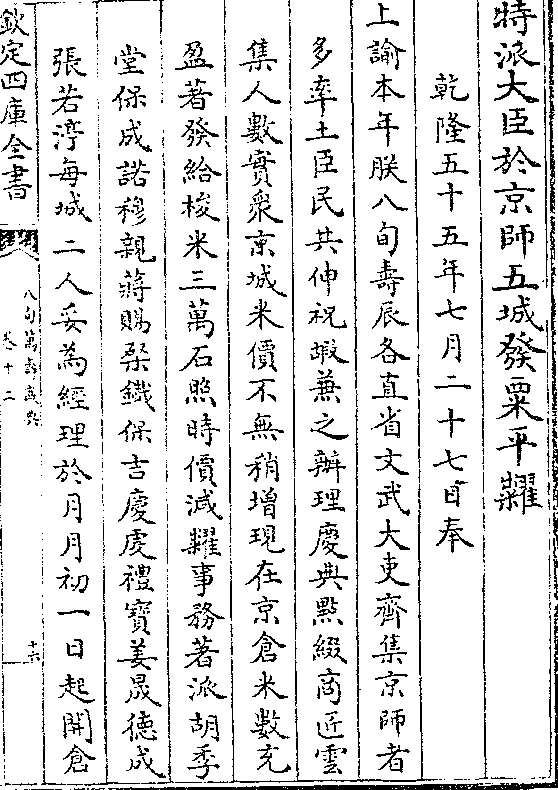 特派大臣於京師五城發粟平糶
乾隆五十五年七月二十七日奉
上諭本年朕八旬壽辰各直省文武大吏齊集京師者
多率土臣民共伸祝嘏兼之辦理慶典點綴商匠雲
集人數實衆京城米價不無稍增現在京倉米數充
盈著發給梭米三萬石照時價減糶事務著派胡季
堂保成諾穆親蔣賜棨鐵保吉慶虔禮寶姜晟德成
張若渟每城二人妥為經理於月月初一日起開倉
欽定四庫全書
八旬萬壽盛典
卷十二
十六